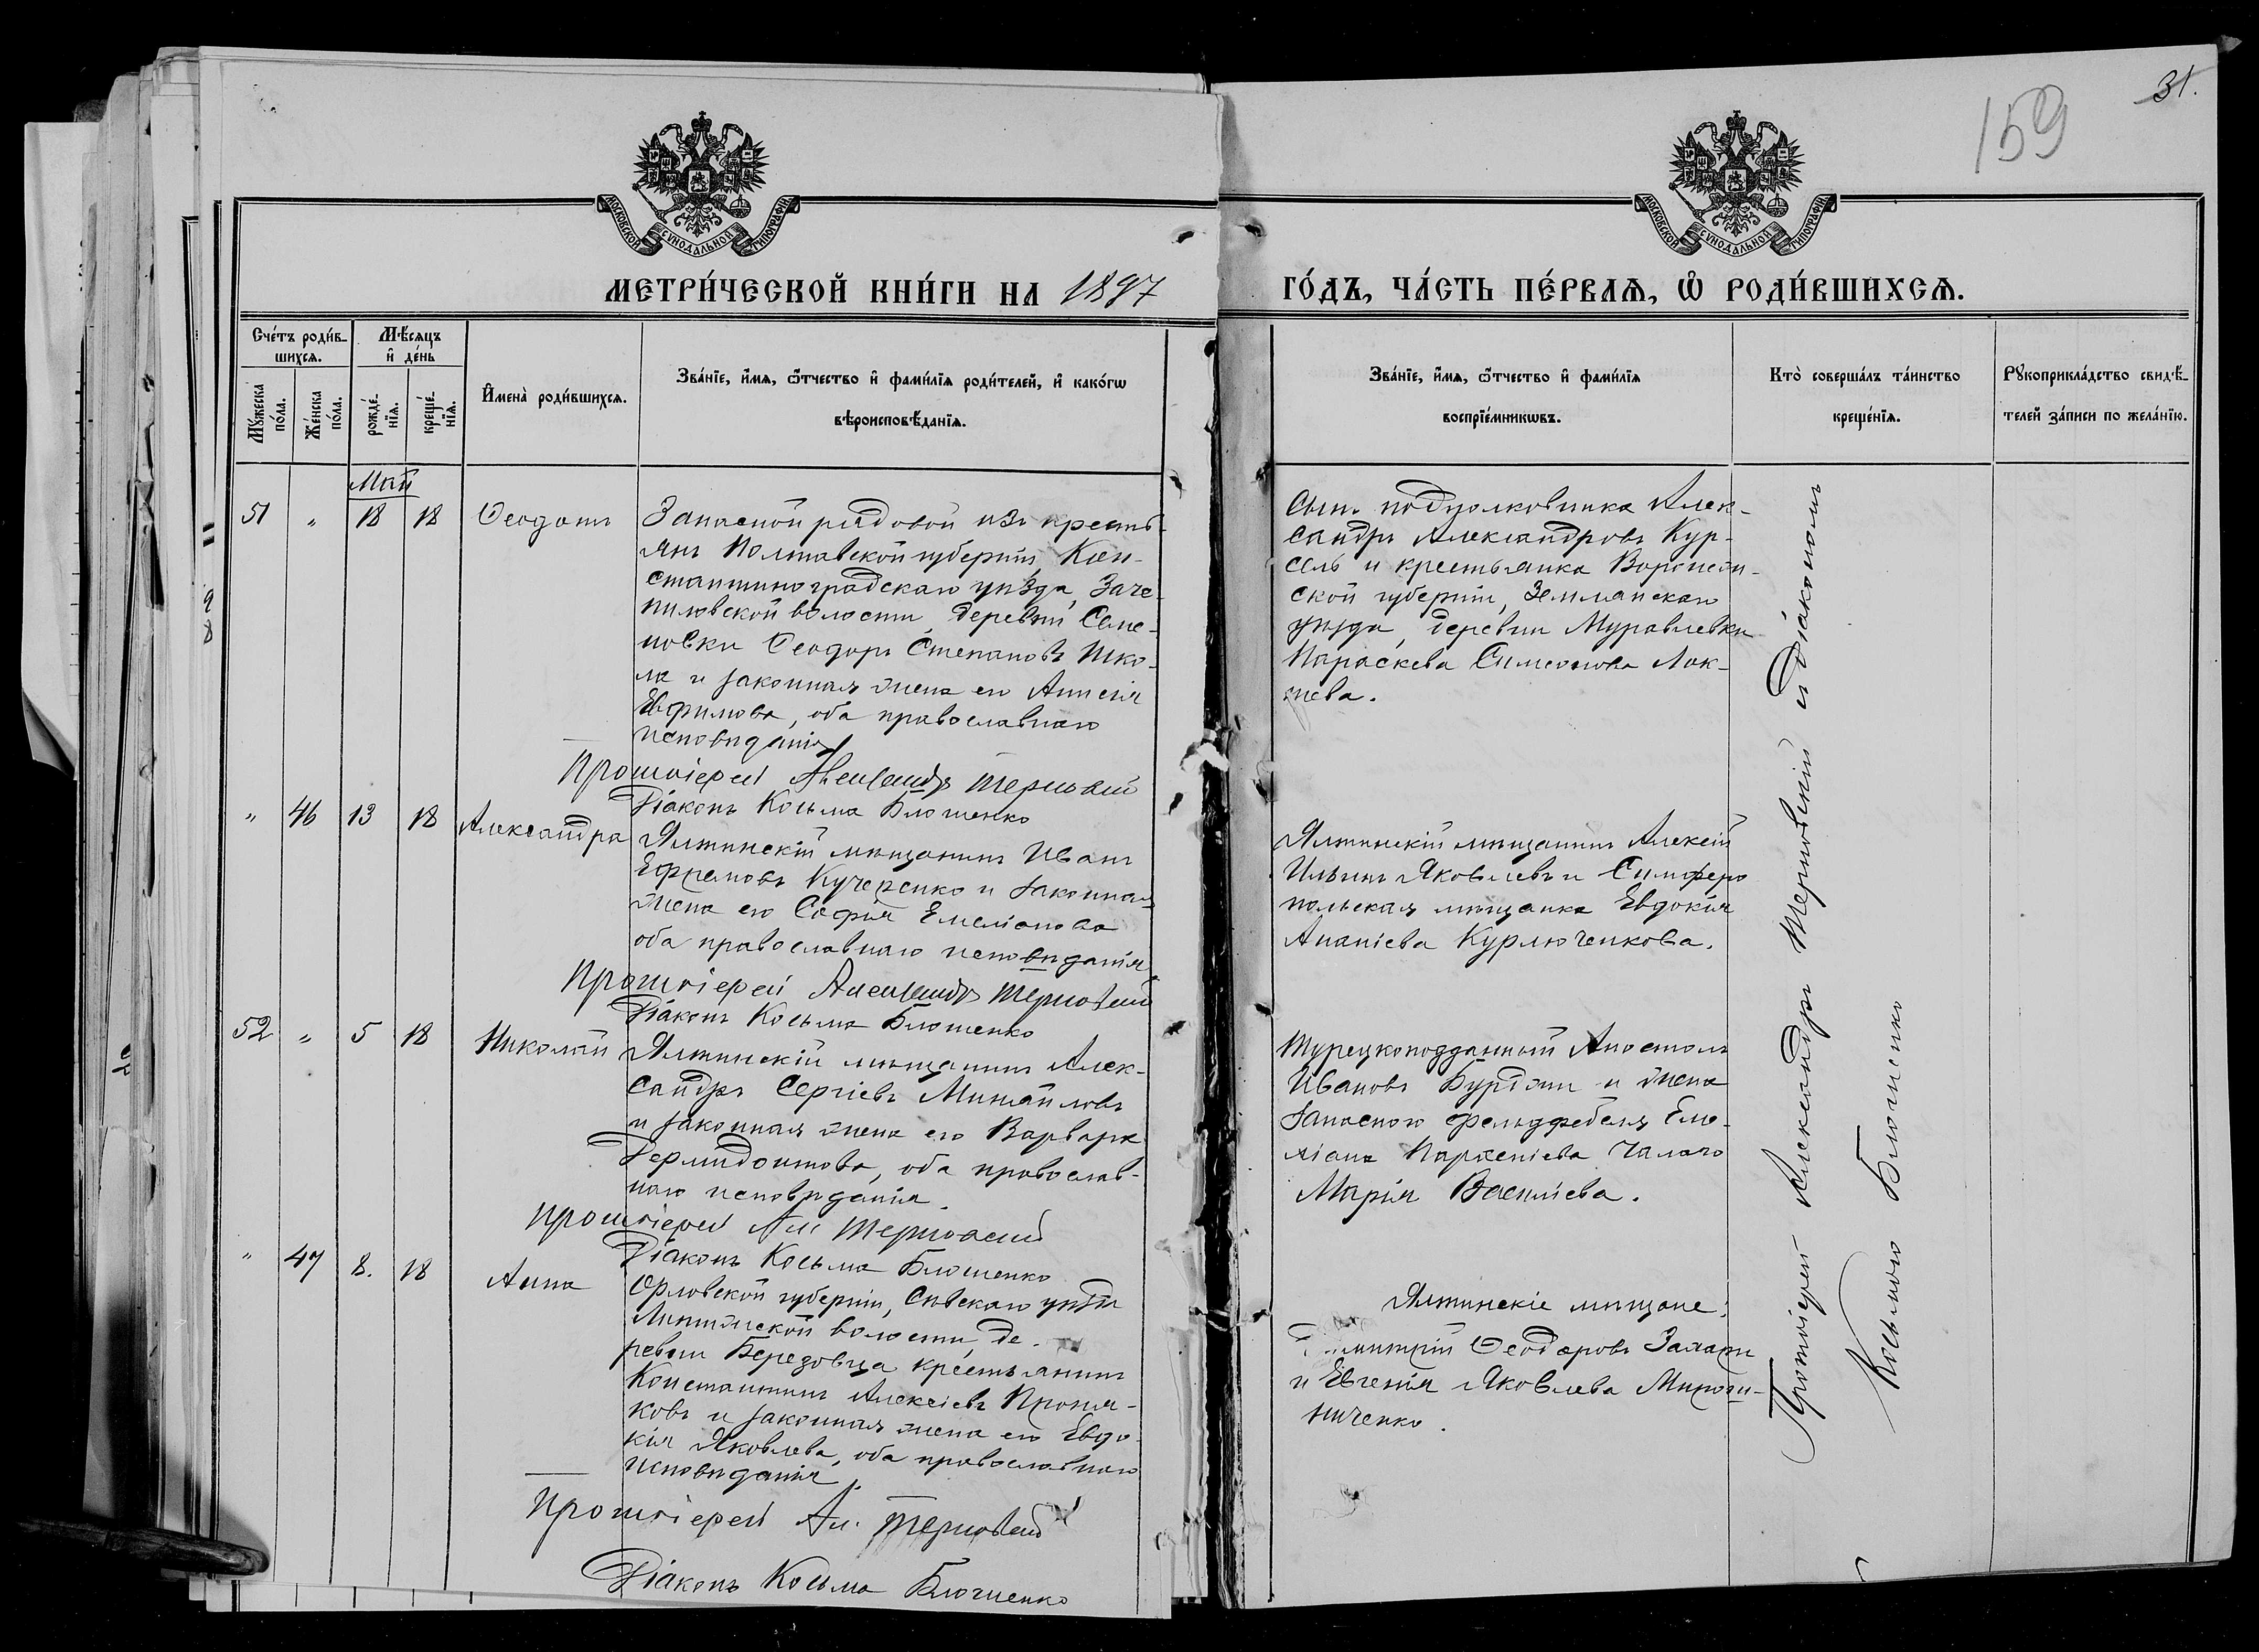 159
31.
МОСКОВСКОЙ СѴНОДАЛЬНОЙ ТИПОГРАФІИ
МОСКОВСКОЙ СѴНОДАЛЬНОЙ ТИПОГРАФІИ
МЕТРИ́ЧЕСКОЙ КНИ́ГИ НА 1897
ГО́ДЪ, ЧА́СТЬ ПЕ́РВАѦ, Ѽ РОДИ́ВШИХСѦ.
Сче́тъ роди́в-
шихсѧ.
Мѣ́сѧцъ
и҆ де́нь
Мꙋ́жеска
по́ла.
Же́нска
по́ла.
рожде́-
нїѧ.
креще́-
нїѧ.
И҆мена̀ роди́вшихсѧ.
Зва́нїе, и҆́мѧ, ѻ҆́тчество и҆ фами́лїѧ роди́телей, и҆ како́гѡ
вѣроисповѣ́данїѧ.
Зва́нїе, и҆́мѧ, ѻ҆́тчество и҆ фами́лїѧ
воспрїе́мникѡвъ.
Кто̀ соверша́лъ та́инство
креще́нїѧ.
Рꙋкоприкла́дство свидѣ́-
телей за́писи по жела́нїю.
Май
51 " 18 18 Ѳеодотъ
Запасной рядовой изъ кресть-
янъ Полтавской губерніи, Кон-
стантиноградскаго уѣзда, Заче-
пиловской волости, деревни Семе-
новки Ѳеодоръ Степановъ Шко-
ла и законная жена его Анисія
Евфимова, оба православнаго
исповѣданія
Протоіерей Александръ Терновскій
Діаконъ Косьма Блошенко
Сынъ подполковника Алек-
сандръ Александровъ Кур-
сель и крестьянка Воронеж-
ской губерніи, Землянскаго
уѣзда, деревни Муравлевки
Параскева Симеонова Лок-
тева.
" 46 13 18 Александра
Ялтинскій мѣщанинъ Иванъ
Ефремовъ Кучеренко и законная
жена его Софія Емеліанова
оба православнаго исповѣданія
Протоіерей Александръ Терновскій
Діаконъ Косьма Блошенко
Ялтинскій мѣщанинъ Алексій
Ильинъ Яковлевъ и Симферо
польская мѣщанка Евдокія
Ананіева Курлюченкова.
52 " 5 18 Николай
Ялтинскій мѣщанинъ Алек-
сандръ Сергіевъ Михайловъ
и законная жена его Варвара
Гермидонтова, оба православ-
наго исповѣданія.
Протоіерей Ал Терновскій
Діаконъ Косьма Блошенко
Турецкоподданный Апостолъ
Ивановъ Бурджи и жена
запаснаго фельдфебеля Еме-
ліана Парѳеніева Чалаго
Марія Василіева.
" 47 8. 18 Анна
Орловской губерніи, Сѣвскаго уѣзда
волости, де-
ревни Березовца крестьянинъ
Константинъ Алексіевъ Проня-
ковъ и законная жена его Евдо-
кія Яковлева, оба православнаго
исповѣданія.
Протоіерей Ал. Терновскій
Діаконъ Косьма Блошенко
Ялтинскіе мѣщане:
Димитрій Ѳеодоровъ
и Евгенія Яковлева Мирош-
ниченко.
Протоіерей Александръ Терновскій и Діакономъ
Косьмою Блошенко